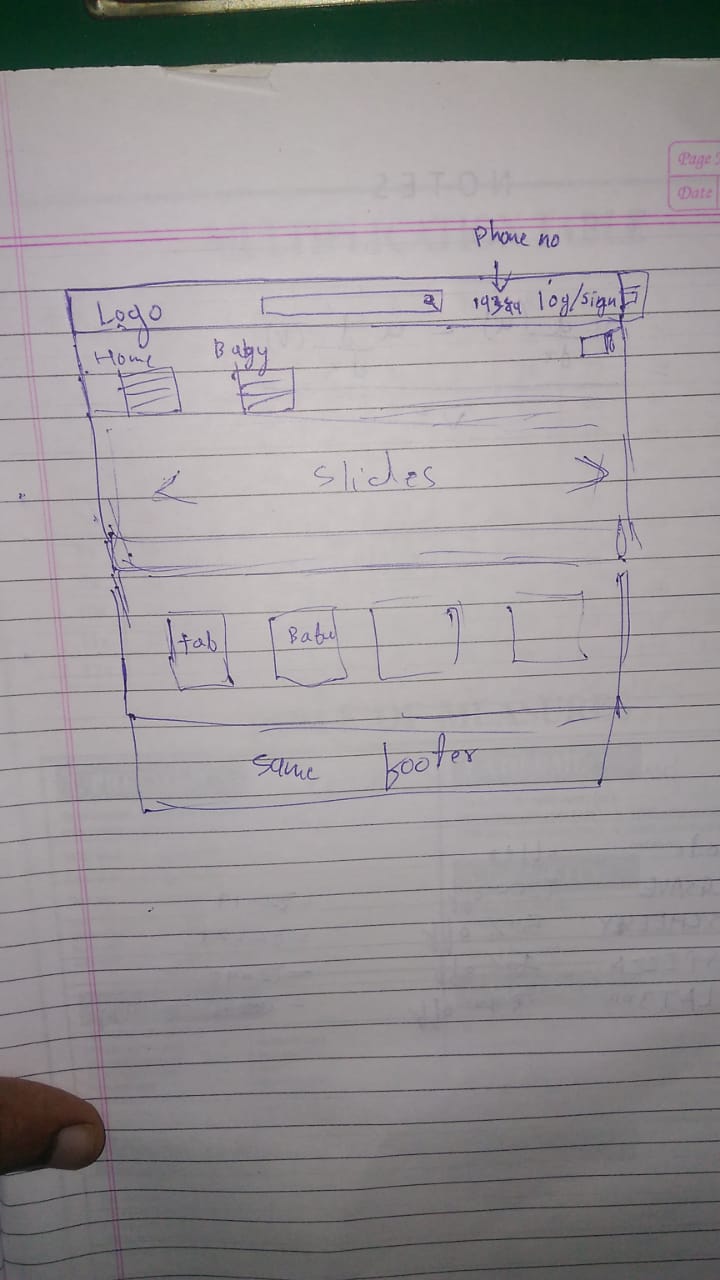 Page
Date
Phone no
Logo log/sign
Home Baby
Slides
tab Baby
same footer